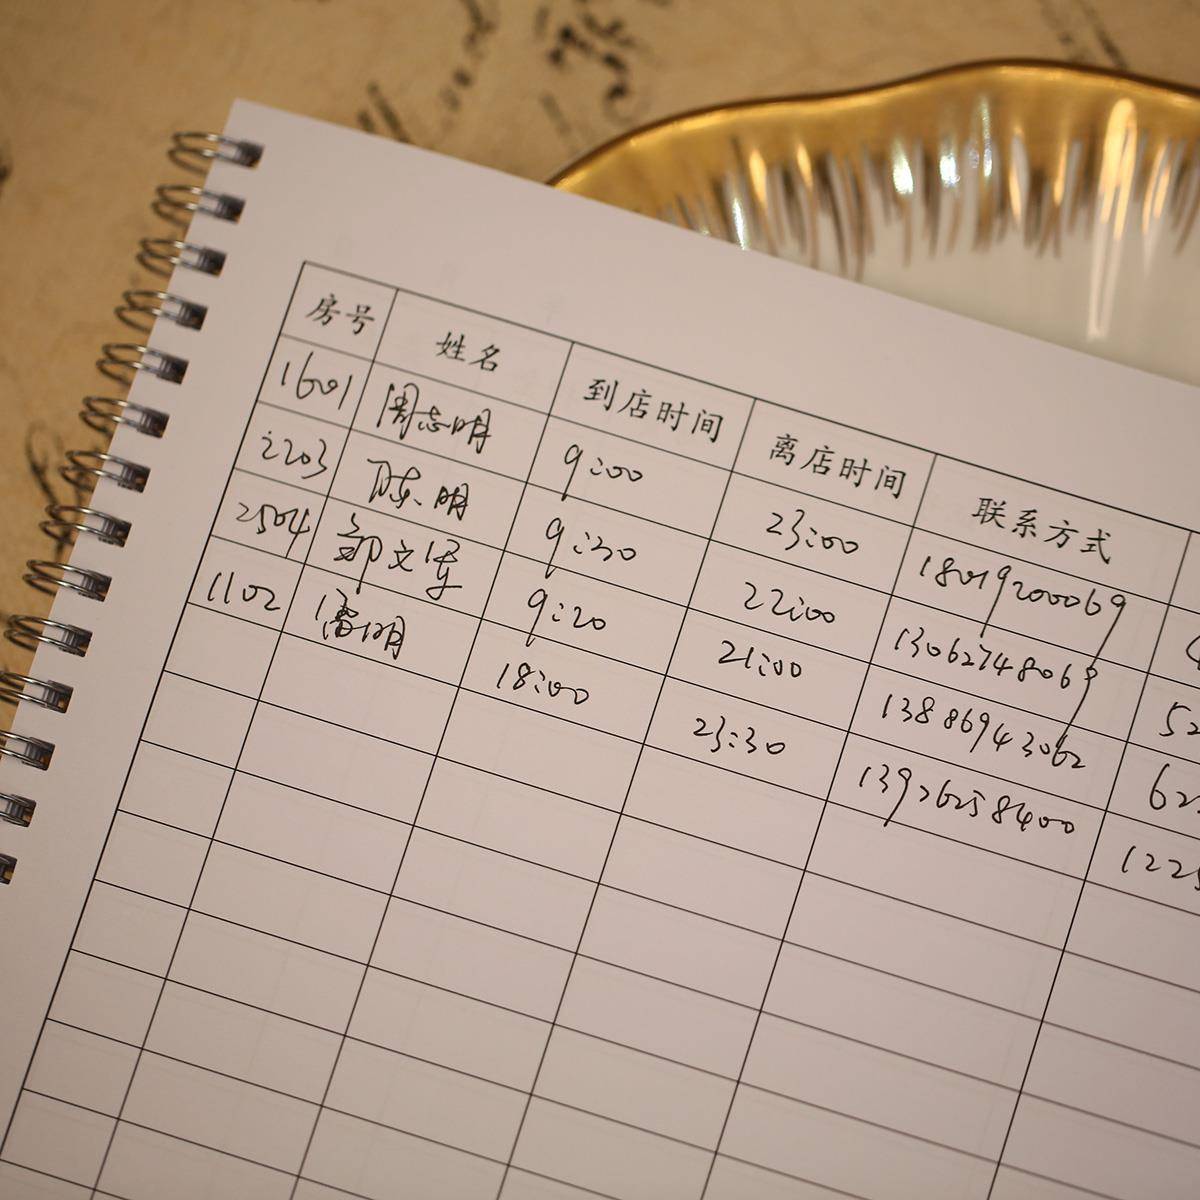 房号 姓名 到店时间 离店时间 联系方式
1601 周志明 9:00 23:00 18019200069
2203 陈明 9:30 22:00 13062748069
2504 郭文 9:20 21:00 13886943062
1102 潘明 18:00 23:30 13926258400